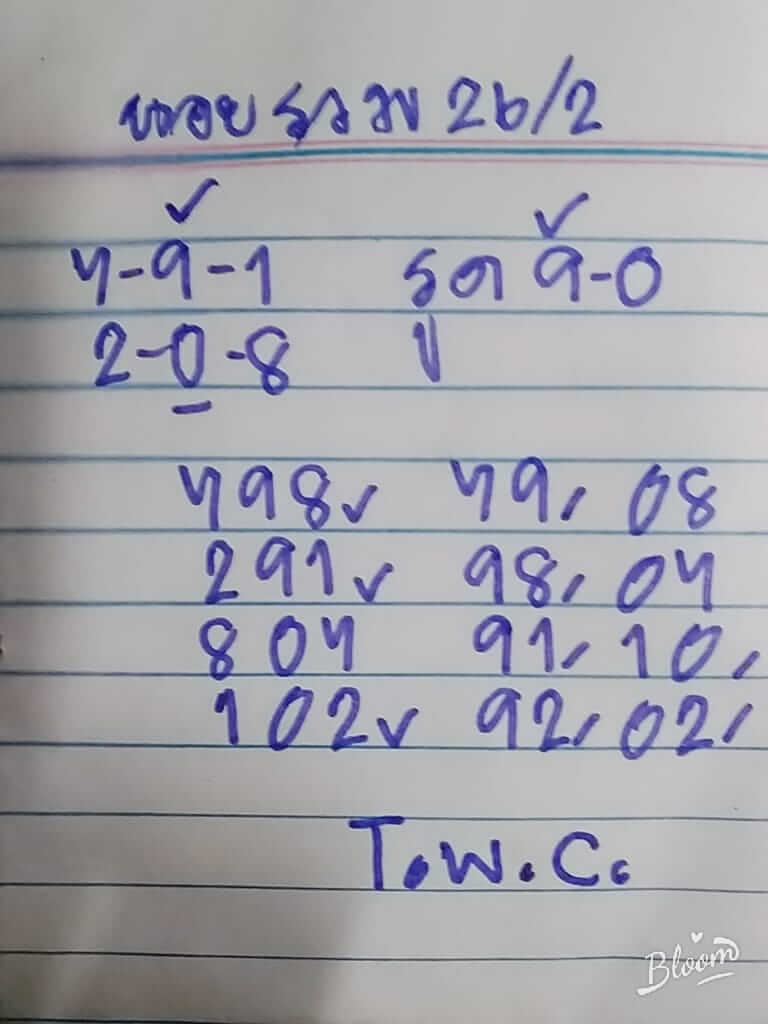 26/2
4-9-1 รูด 9-0
2-0-8
498 49, 08
291 98, 04
804 91, 10,
102 92, 02,
T.W.C.
Bloom